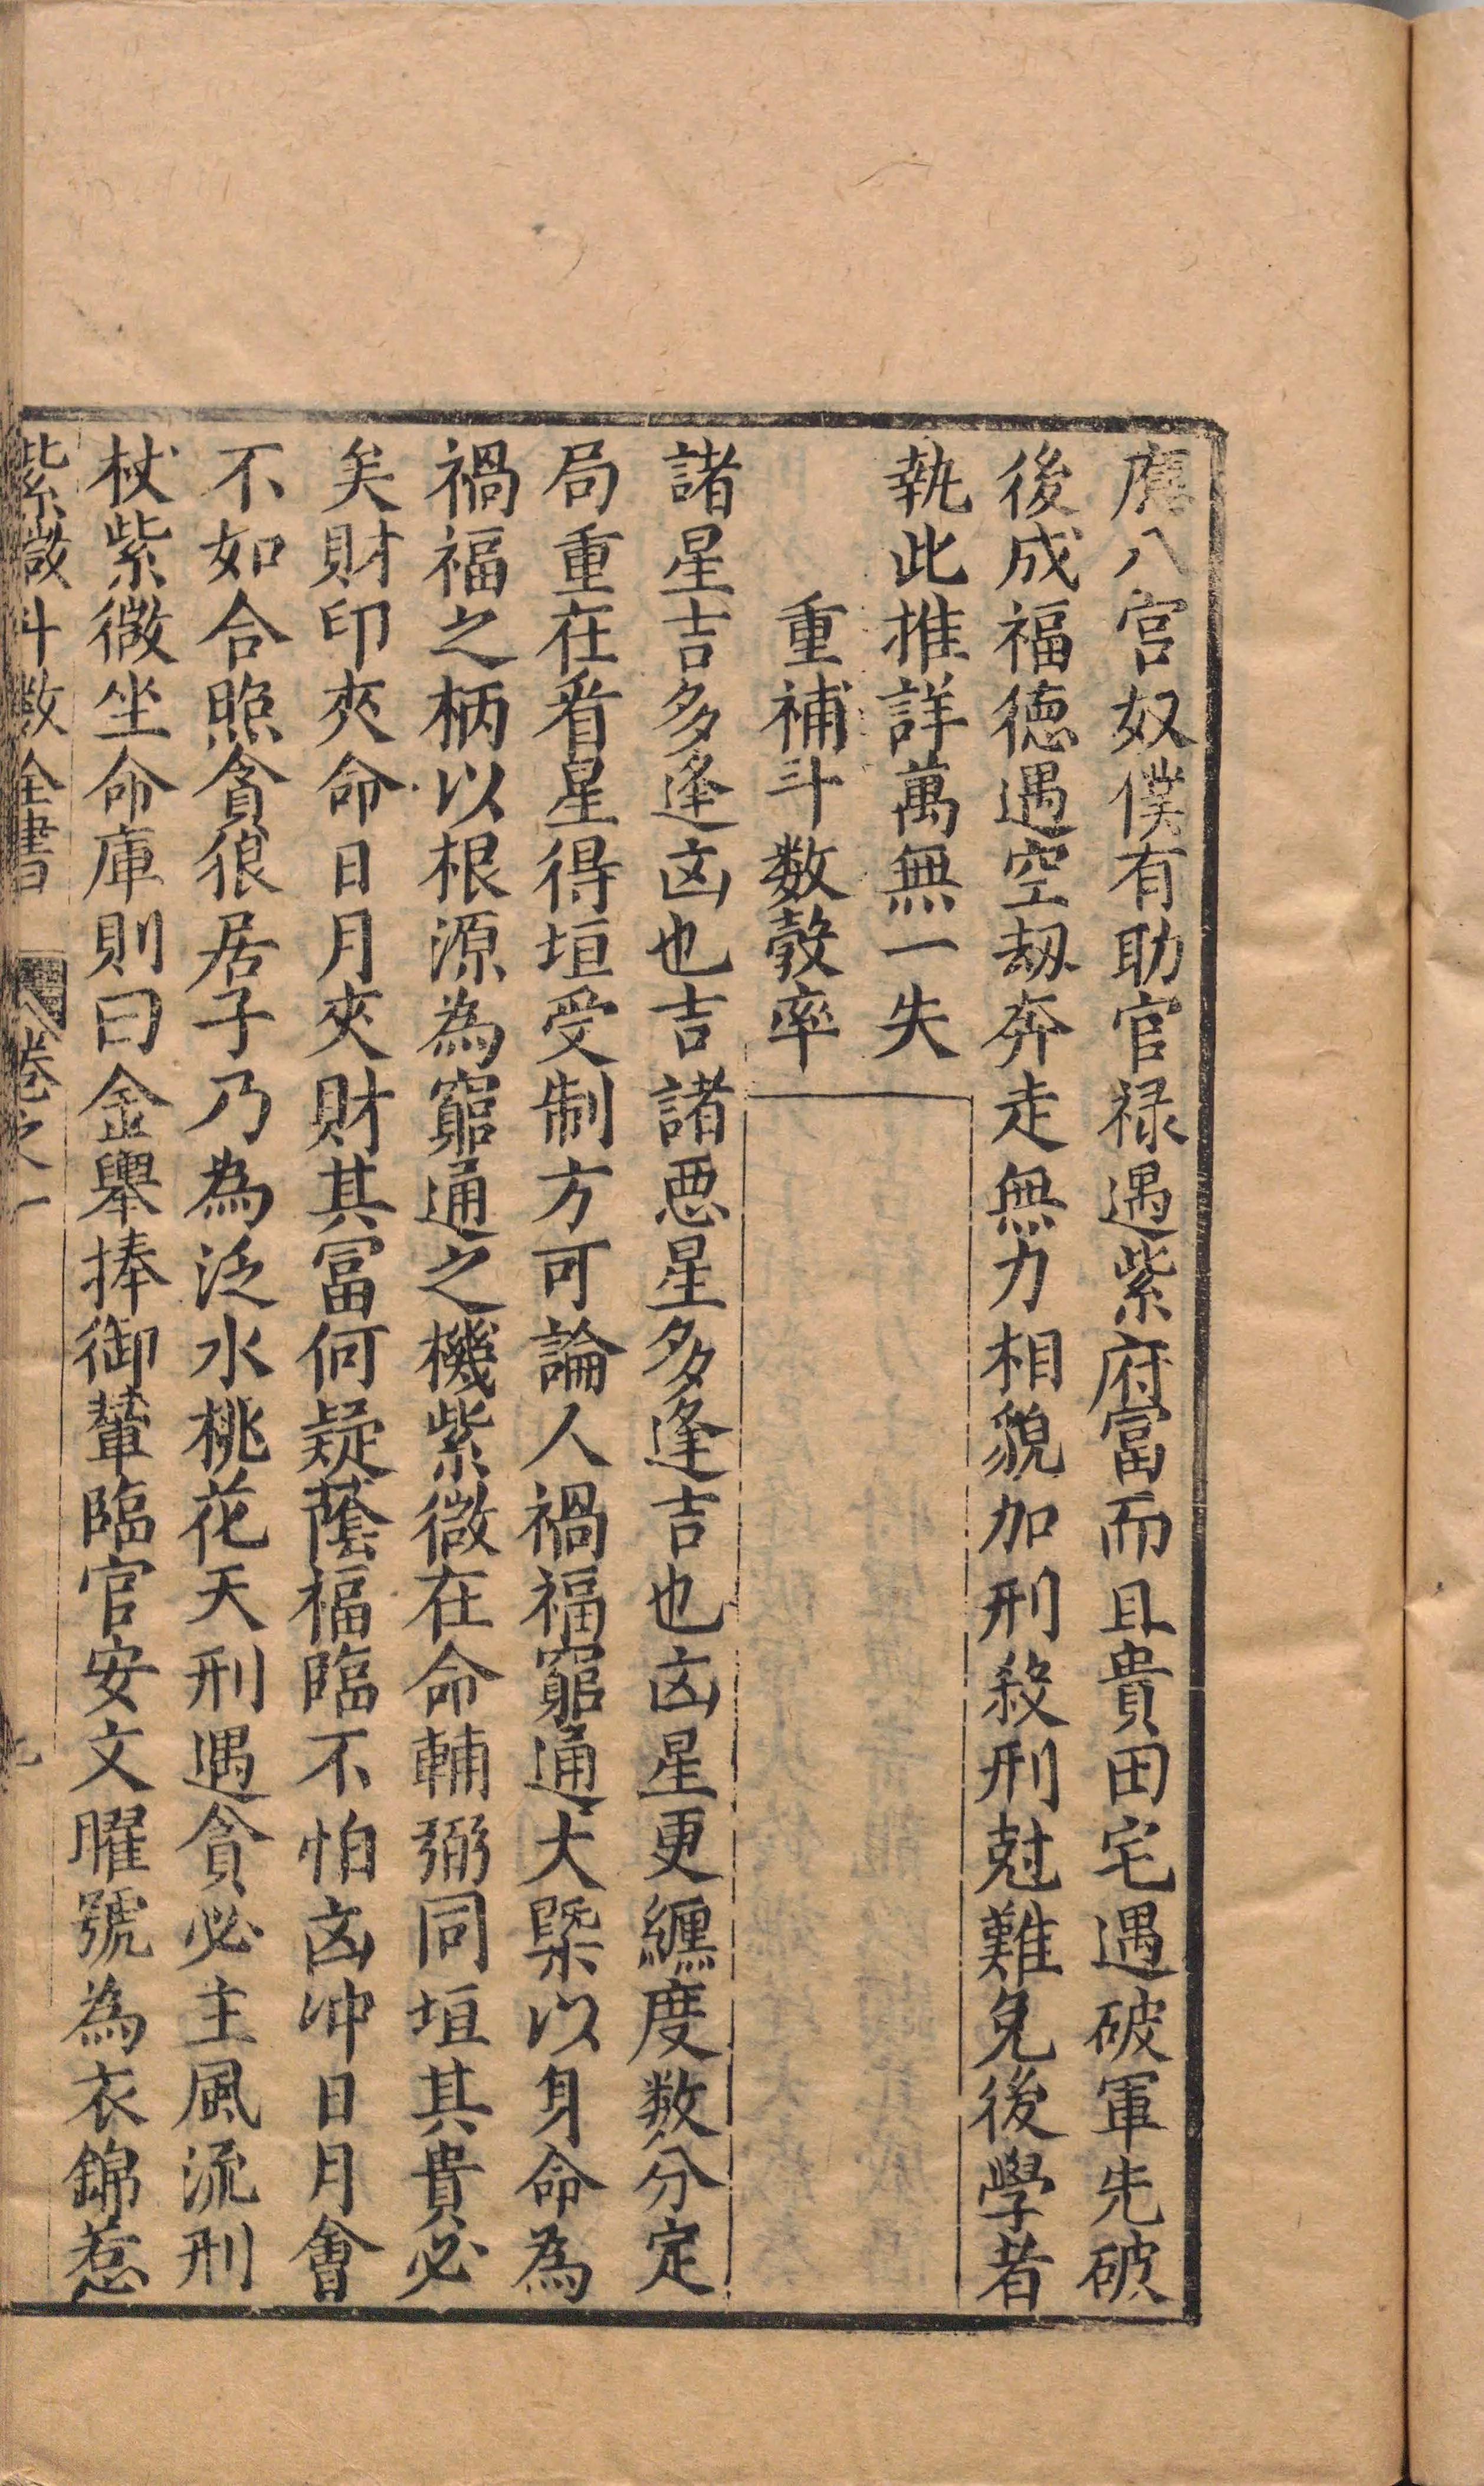 八宮奴僕有助官禄遇紫府富而且貴田宅遇破軍先破
後成福德遇空刼奔走無力相貌加刑殺刑尅難免後學者
執此推詳萬無一失
重補斗数彀率
諸星吉多逢凶也吉諸恶星多逢吉也凶星更纏度数分定
局重在看星得垣受制方可論人禍福窮通大槩以身命為
禍福之柄以根源為窮通之機紫微在命輔弼同垣其貴必
矣財印夾命日月夾財其冨何疑蔭福臨不怕凶冲日月會
不如合照貪狼居子乃為泛水桃花天刑遇貪必主風流刑
杖紫微坐命庫則曰金轝捧御輦臨官安文曜號為衣錦惹
紫微斗数全書 卷之一